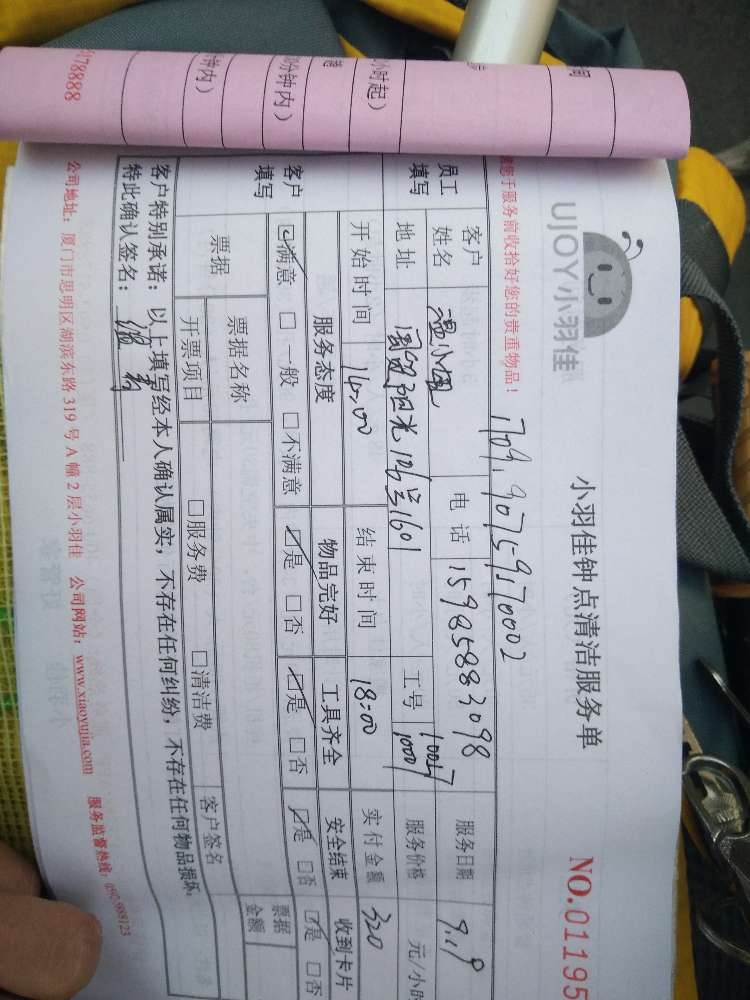 UJOY小羽佳
小羽佳钟点清洁服务单
NO.01195
您于服务前收拾好您的贵重物品！
1709.90759170002
员工填写
客户姓名
电话 15985883098
工号
服务日期 9.19
地址
阳光126号1601
服务价格
元/小时
开始时间 14:00
结束时间 18:00
实付金额 320
客户填写
服务态度 物品完好 工具齐全 安全结束 收到卡片
☑满意 □一般 □不满意 ☑是 □否 ☑是 □否 ☑是 □否 ☑是 □否
票据
票据名称
票据金额
开票项目 □服务费 □清洁费 客户签名
客户特别承诺：以上填写经本人确认属实，不存在任何纠纷，不存在任何物品损坏，
特此确认签名：
公司地址：厦门市思明区湖滨东路319号A幢2层小羽佳 公司网站：www.xiaoyujia.com 服务监督热线：
78888
小时起）
分钟内）